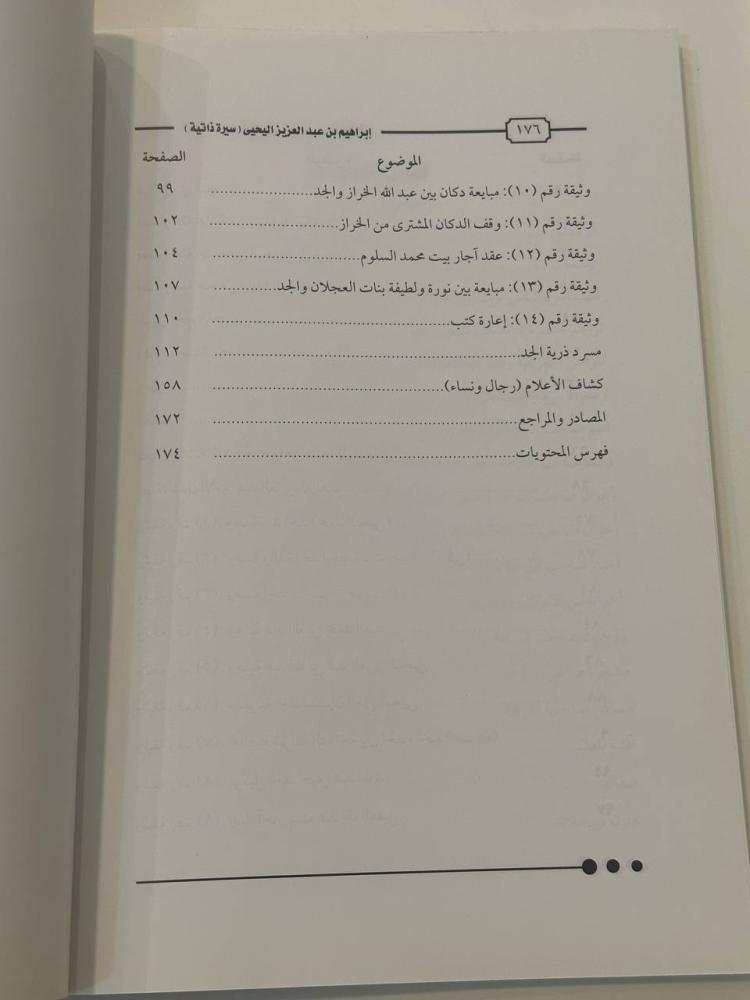 ١٧٦ إبراهيم بن عبد العزيز اليحيى (سيرة ذاتية)
الموضوع الصفحة
وثيقة رقم (١٠): مبايعة دكان بين عبد الله الخراز والجد ..................... ٩٩
وثيقة رقم (١١): وقف الدكان المشترى من الخراز ........................... ١٠٢
وثيقة رقم (١٢): عقد آجار بيت محمد السلوم ............................... ١٠٤
وثيقة رقم (١٣): مبايعة بين نورة ولطيفة بنات العجلان والجد ............. ١٠٧
وثيقة رقم (١٤): إعارة كتب ................................................. ١١٠
مسرد ذرية الجد ................................................................ ١١٢
كشاف الأعلام (رجال ونساء) ................................................ ١٥٨
المصادر والمراجع ............................................................... ١٧٢
فهرس المحتويات ............................................................... ١٧٤